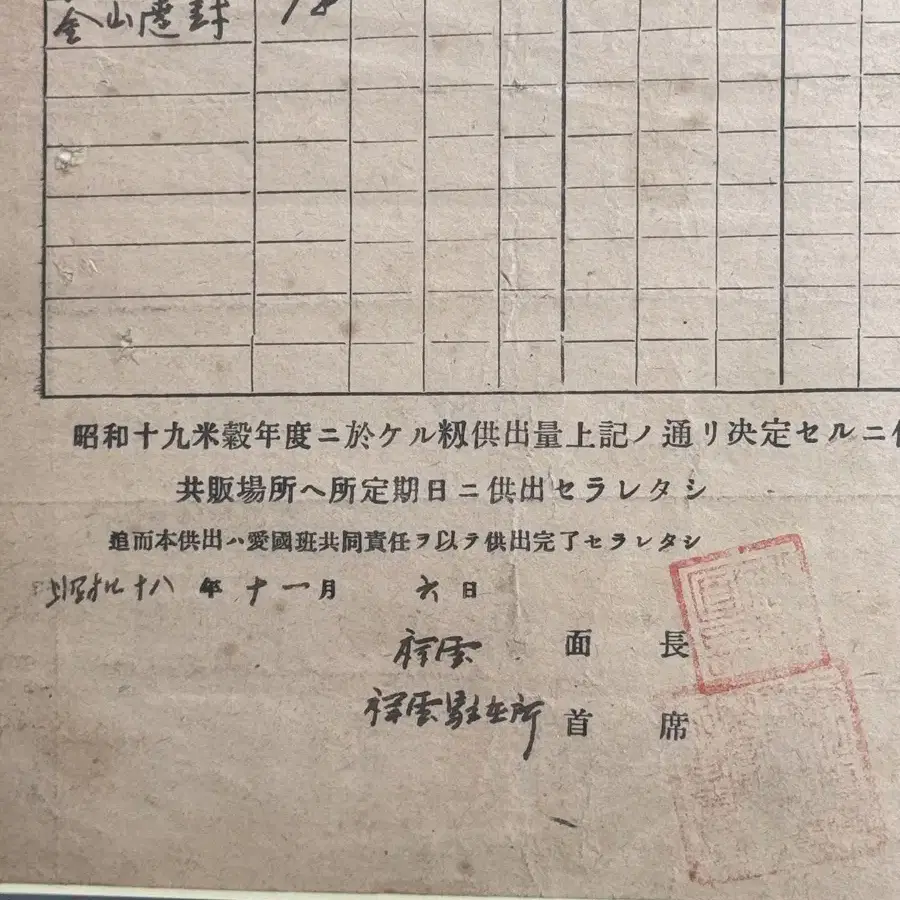 金山 封 18
昭和十九米穀年度ニ於ケル籾供出量上記ノ通リ決定セルニ
共販場所ヘ所定期日ニ供出セラレタシ
追而本供出ハ愛國班共同責任ヲ以テ供出完了セラレタシ
昭和十八年十一月 六日
祥雲 面長
祥雲駐在所 首席